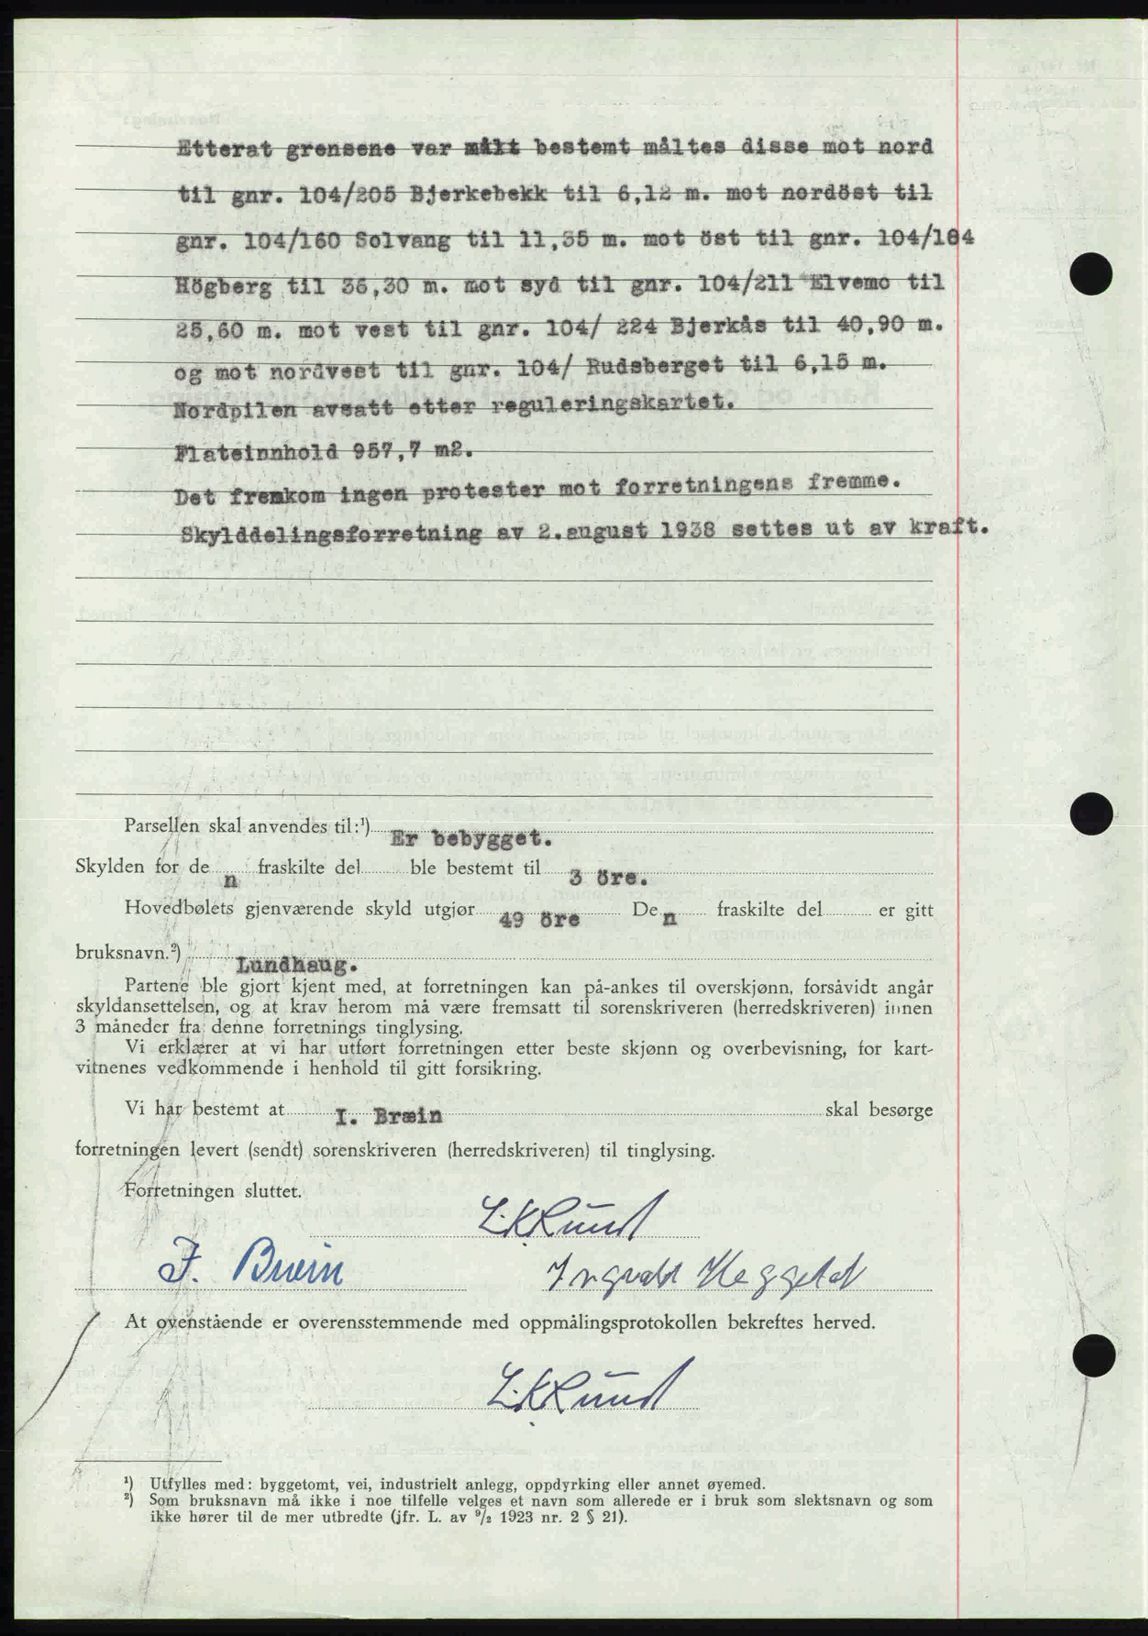 Etterat grensene var målt bestemt måltes disse mot nord
til gnr. 104/205 Bjerkebekk til 6,12 m. mot nordöst til
gnr. 104/160 Solvang til 11,35 m. mot öst til gnr. 104/184
Högberg til 36,30 m. mot syd til gnr. 104/211 Elvemo til
25,60 m. mot vest til gnr. 104/ 224 Bjerkås til 40,90 m.
og mot nordvest til gnr. 104/ Rudsberget til 6,15 m.
Nordpilen avsatt etter reguleringskartet.
Flateinnhold 957,7 m2.
Det fremkom ingen protester mot forretningens fremme.
Skylddelingsforretning av 2.august 1938 settes ut av kraft.
Parsellen skal anvendes til:¹) Er bebygget.
Skylden for de n fraskilte del ble bestemt til 3 öre.
Hovedbølets gjenværende skyld utgjør 49 öre De n fraskilte del er gitt
bruksnavn.²) Lundhaug.
Partene ble gjort kjent med, at forretningen kan på-ankes til overskjønn, forsåvidt angår
skyldansettelsen, og at krav herom må være fremsatt til sorenskriveren (herredskriveren) innen
3 måneder fra denne forretnings tinglysing.
Vi erklærer at vi har utført forretningen etter beste skjønn og overbevisning, for kart-
vitnenes vedkommende i henhold til gitt forsikring.
Vi har bestemt at I. Bræin skal besørge
forretningen levert (sendt) sorenskriveren (herredskriveren) til tinglysing.
Forretningen sluttet.
I. Bræin Ingvald Heggelat
At ovenstående er overensstemmende med oppmålingsprotokollen bekreftes herved.
¹) Utfylles med: byggetomt, vei, industrielt anlegg, oppdyrking eller annet øyemed.
²) Som bruksnavn må ikke i noe tilfelle velges et navn som allerede er i bruk som slektsnavn og som
ikke hører til de mer utbredte (jfr. L. av ⁹/₂ 1923 nr. 2 § 21).